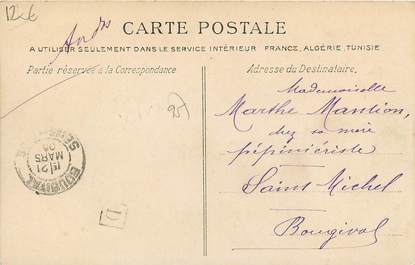 12€
Andre
CARTE POSTALE
A UTILISER SEULEMENT DANS LE SERVICE INTÉRIEUR FRANCE, ALGÉRIE, TUNISIE
Partie réservée à la Correspondance
Adresse du Destinataire.
Mademoiselle
Marthe Mantion,
chez sa mère
pépiniériste
Saint Michel
Bougival
BOUGIVAL
21
MARS
05
D